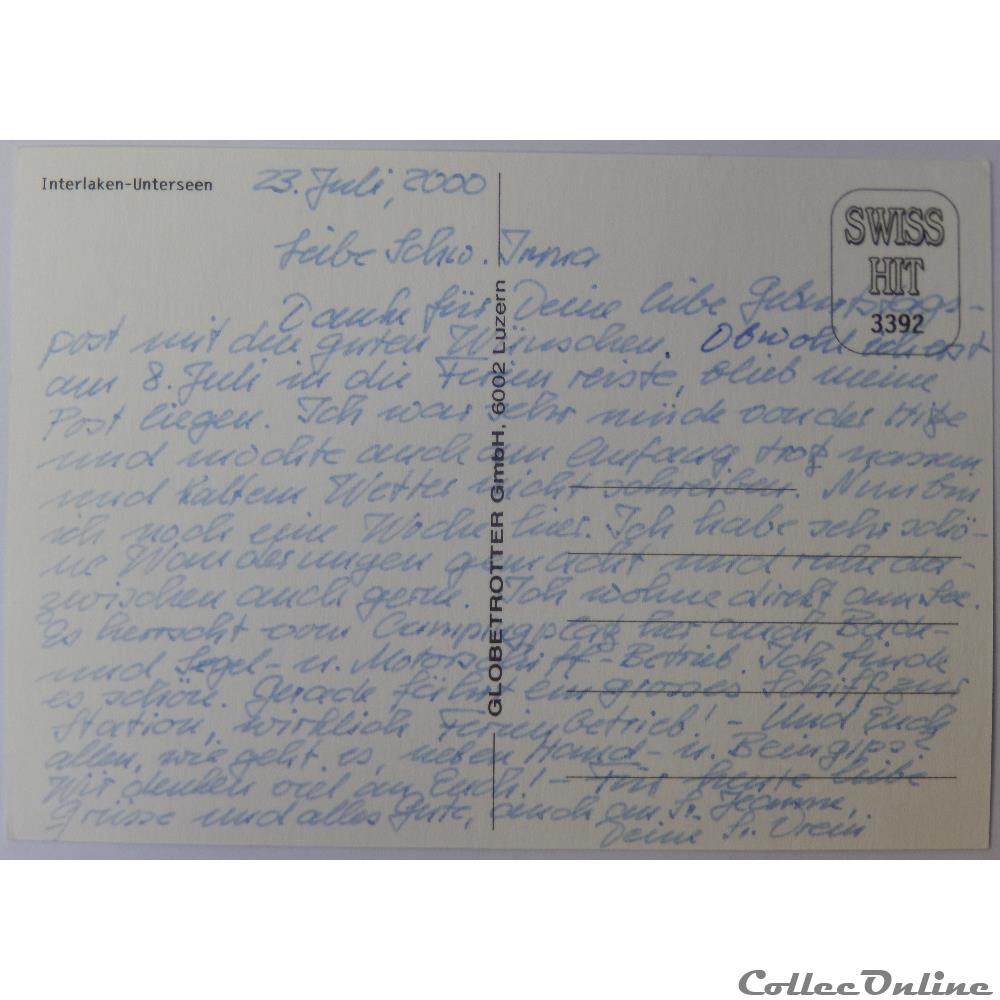 Interlaken-Unterseen
23. Juli, 2000
SWISS
HIT
3392
Liebe Schw. Irma
Danke für Deine liebe Geburtstags-
post mit den guten Wünschen. Obwohl ich erst
am 8. Juli in die Ferien reiste, blieb meine
Post liegen. Ich war sehr müde von der Hitze
und mochte auch am Anfang trotz nassem
und kaltem Wetter nicht schreiben. Nun bin
ich noch eine Woche hier. Ich habe sehr schö-
ne Wanderungen gemacht und ruhe da-
zwischen auch gern. Ich wohne direkt am See.
Es herrscht vom Campingplatz her auch Bade-
und Segel- u. Motorschiff-Betrieb. Ich finde
es schön. Gerade fährt ein grosses Schiff zur
Station, wirklich Ferienbetrieb! - Und Euch
allen, wie geht es, neben Hand- u. Beingips?
Wir denken viel an Euch! - Für heute liebe
Grüsse und alles Gute, auch an Sr. Jeanne,
Deine Sr. Vreni
GLOBETROTTER GmbH, 6002 Luzern
CollecOnline